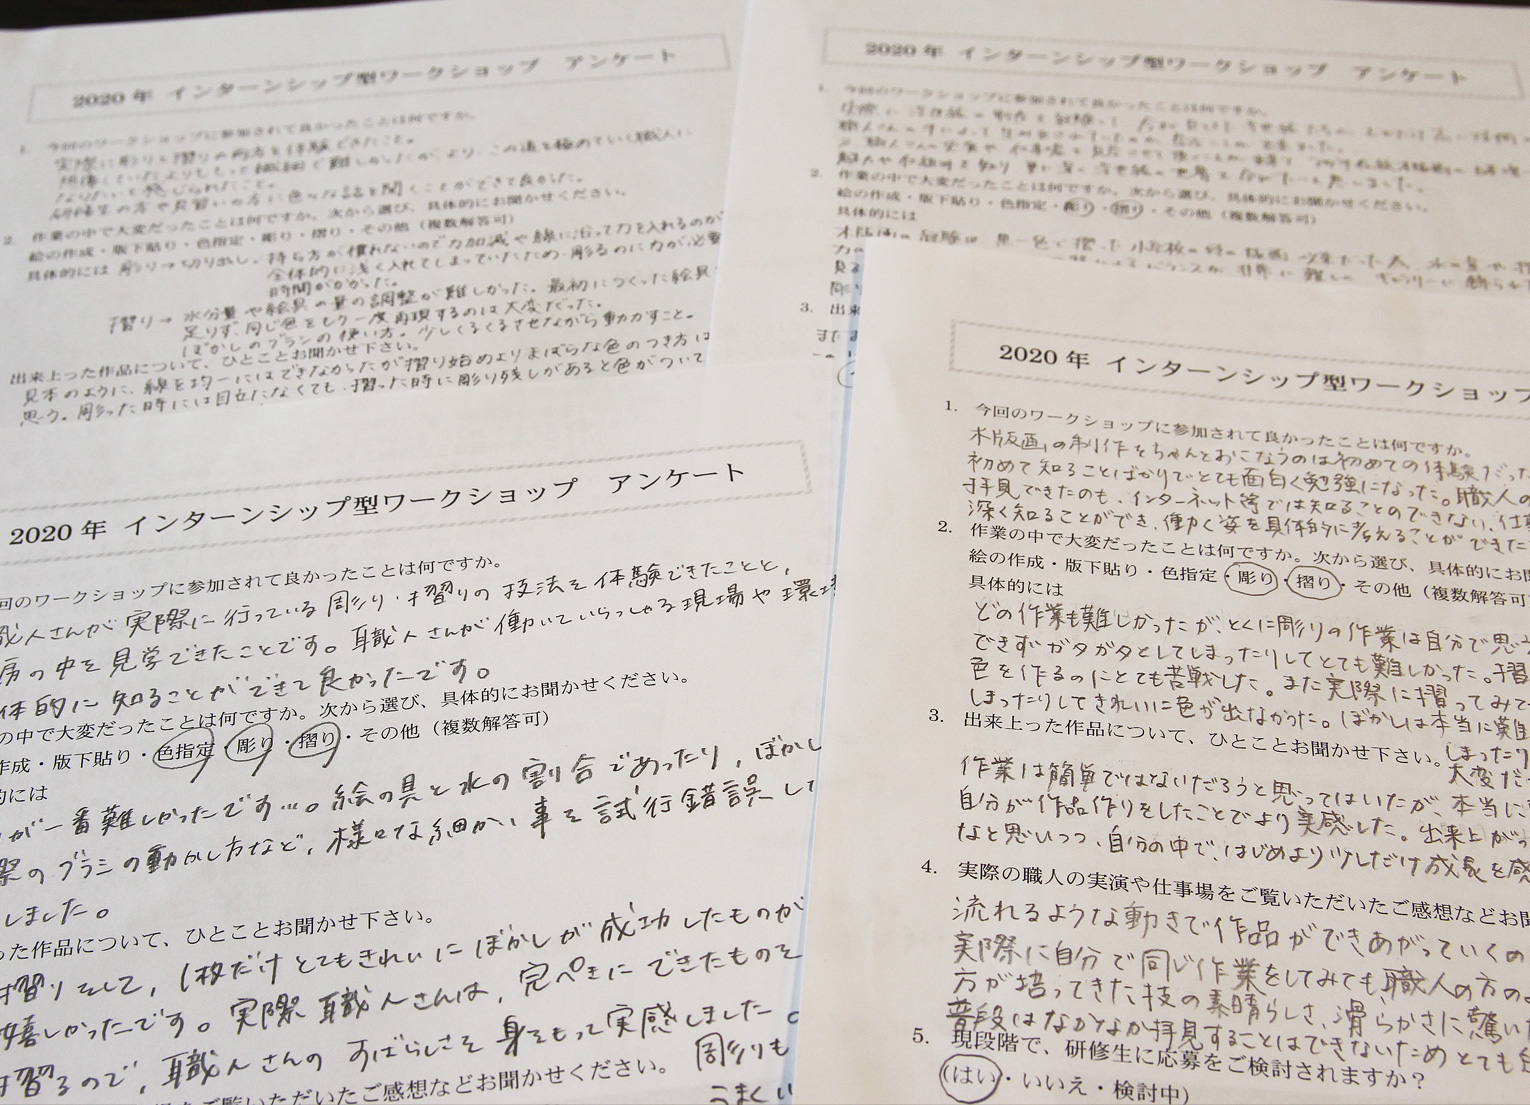 2020 年 インターンシップ型ワークショップ　アンケート
1. 今回のワークショップに参加されて良かったことは何ですか。
実際に彫りと摺りの両方を体験できたこと。
想像していたよりもっと繊細で難しかったが、より、この道を極めていく職人に
なりたいと感じられたこと。
研修生の方や見習いの方に色々な話を聞くことができて良かった。
2. 作業の中で大変だったことは何ですか。次から選び、具体的にお聞かせください。
絵の作成・版下貼り・色指定・彫り・摺り・その他（複数解答可）
具体的には 彫り→切り出し、持ち方が慣れないので力加減や線に沿って力を入れるのが
全体的に浅く入れてしまっていたため、彫るのに力が必要
時間がかかった。
摺り→ 水分量や絵具の量の調整が難しかった。最初につくった絵具
足りず、同じ色をもう一度再現するのは大変だった。
ぼかしのブラシの使い方。少しくるくるさせながら動かすこと。
出来上った作品について、ひとことお聞かせ下さい。
見本のように、線を均一にはできなかったが摺り始めよりまばらな色のつき方は
思う。彫った時には目立たなくても、摺った時に彫り残しがあると色がついて
2020 年 インターンシップ型ワークショップ　アンケート
1. 今回のワークショップに参加されて良かったことは何ですか。
2. 作業の中で大変だったことは何ですか。次から選び、具体的にお聞かせください。
絵の作成・版下貼り・色指定・彫り・摺り・その他（複数解答可）
具体的には
3. 出来
2020 年 インターンシップ型ワークショップ　アンケート
回のワークショップに参加されて良かったことは何ですか。
職人さんが実際に行っている彫り・摺りの技法を体験できたことと、
房の中を見学できたことです。職人さんが働いていらっしゃる現場や環境
体的に知ることができて良かったです。
の中で大変だったことは何ですか。次から選び、具体的にお聞かせください。
作成・版下貼り・色指定・彫り・摺り・その他（複数解答可）
的には
が一番難しかったです…。絵の具と水の割合であったり、ぼかし
際のブラシの動かし方など、様々な細かい事を試行錯誤した
しました。
った作品について、ひとことお聞かせ下さい。
摺りをして、1枚だけとてもきれいにぼかしが成功したものが
嬉しかったです。実際職人さんは、完ぺきにできたものを
摺るので、職人さんのすばらしさを身をもって実感しました。
をご覧いただいたご感想などお聞かせください。 彫りも
うまくい
2020 年 インターンシップ型ワークショップ
1. 今回のワークショップに参加されて良かったことは何ですか。
木版画の制作をちゃんとおこなうのは初めての体験だった
初めて知ることばかりでとても面白く勉強になった。職人の
拝見できたのも、インターネット等では知ることのできない、仕事
深く知ることができ、働く姿を具体的に考えることができた
2. 作業の中で大変だったことは何ですか。次から選び、具体的にお聞
絵の作成・版下貼り・色指定・彫り・摺り・その他（複数解答可
具体的には
どの作業も難しかったが、とくに彫りの作業は自分で思う
できずガタガタとしてしまったりしてとても難しかった。摺
色を作るのにとても苦戦した。また実際に摺ってみて
しまったりしてきれいに色が出なかった。ぼかしは本当に難
3. 出来上った作品について、ひとことお聞かせ下さい。しまったり
大変だ
作業は簡単ではないだろうと思ってはいたが、本当に
自分が作品作りをしたことでより実感した。出来上がっ
なと思いつつ、自分の中で、はじめより少しだけ成長を感
4. 実際の職人の実演や仕事場をご覧いただいたご感想などお聞
流れるような動きで作品ができあがっていくの
実際に自分で同じ作業をしてみても、職人の方のよ
方が培ってきた技の素晴らしさ、滑らかさに驚いた
普段はなかなか拝見することはできないためとても
5. 現段階で、研修生に応募をご検討されますか？
（はい・いいえ・検討中）